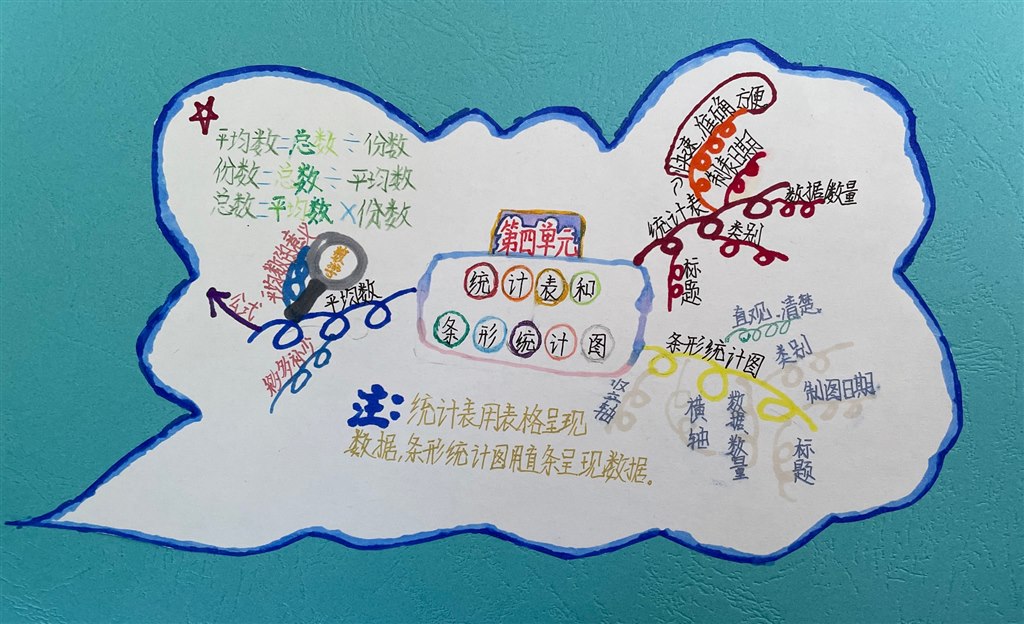 平均数=总数÷份数
份数=总数÷平均数
总数=平均数×份数
第四单元
统计表和
条形统计图
平均数
公式
平均数的意义
数学
移多补少
统计表
快速、准确、方便
制表日期
数据、数量
类别
标题
条形统计图
直观、清楚
类别
制图日期
竖轴
横轴
数据、数量
标题
注:统计表用表格呈现
数据,条形统计图用直条呈现数据。